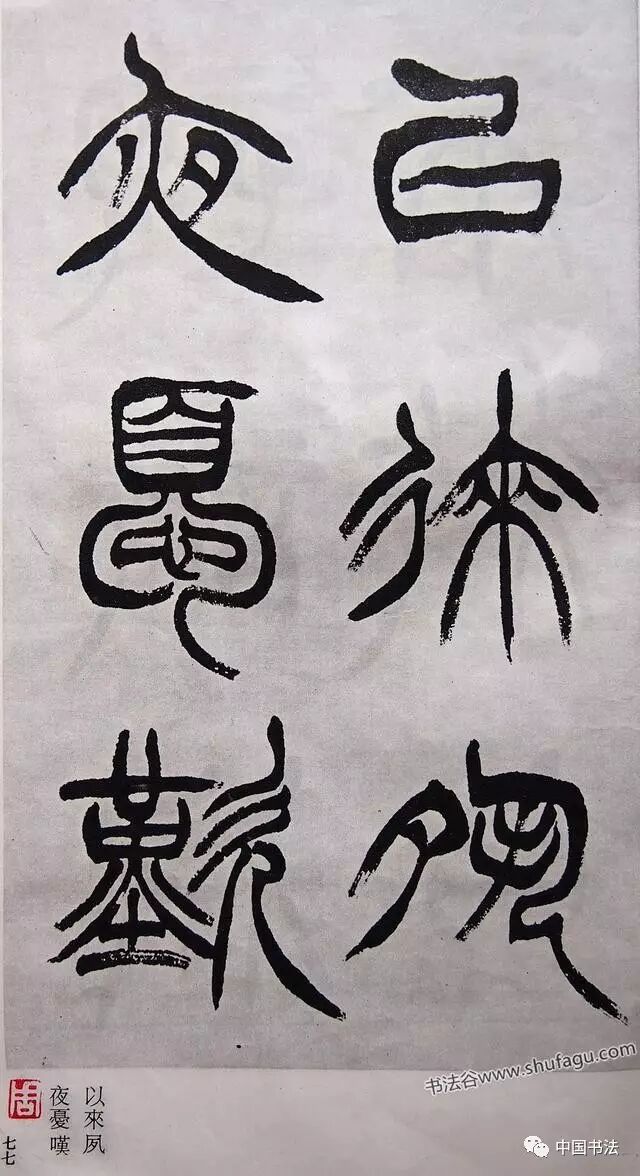 以徠夙
夜憂歎
以來夙
夜憂嘆
七七
书法谷www.shufagu.com
中国书法